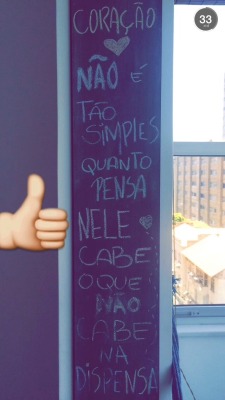 33
CORAÇÃO
NÃO É
TÃO
SIMPLES
QUANTO
PENSA
NELE
CABE
O QUE
NÃO
CABE
NA
DISPENSA